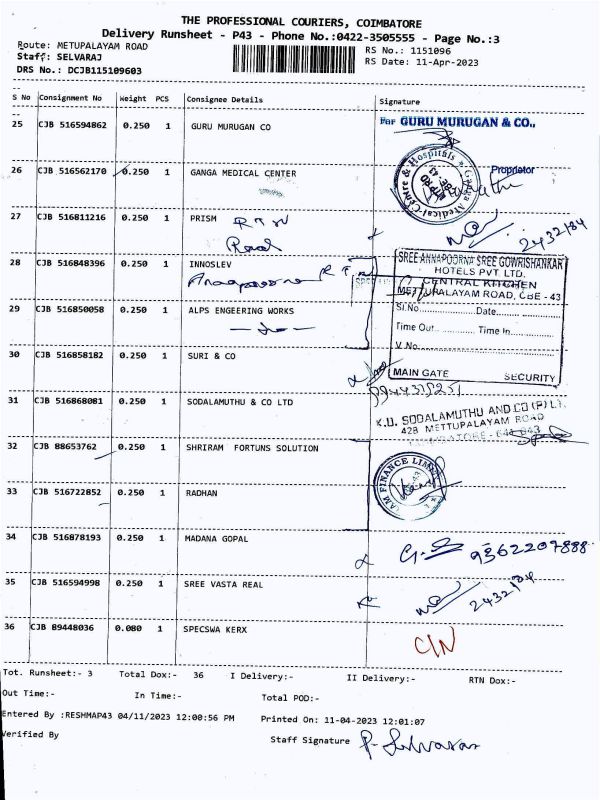 THE PROFESSIONAL COURIERS, COIMBATORE
Delivery Runsheet - P43 - Phone No.:0422-3505555 - Page No.:3
Route: METUPALAYAM ROAD
RS No.: 1151096
Staff: SELVARAJ
RS Date: 11-Apr-2023
DRS No.: DCJB115109603
S No Consignment No Weight PCS Consignee Details Signature
25 CJB 516594862 0.250 1 GURU MURUGAN CO
For GURU MURUGAN & CO.,
Proprietor
26 CJB 516562170 0.250 1 GANGA MEDICAL CENTER
Ganga Medical Centre & Hospitals
27 CJB 516811216 0.250 1 PRISM
Road
2432184
28 CJB 516848396 0.250 1 INNOSLEV
Annapoorna
SREE ANNAPOORNA SREE GOWRISHANKAR
HOTELS PVT. LTD.
CENTRAL KITCHEN
METTUPALAYAM ROAD, CBE - 43
Sl.No. Date
Time Out Time In
V. No.
MAIN GATE SECURITY
29 CJB 516850058 0.250 1 ALPS ENGEERING WORKS
30 CJB 516858182 0.250 1 SURI & CO
31 CJB 516868081 0.250 1 SODALAMUTHU & CO LTD
K.U. SODALAMUTHU AND CO (P) LT.
42B METTUPALAYAM ROAD
COIMBATORE - 641 043
32 CJB 88653762 0.250 1 SHRIRAM FORTUNS SOLUTION
33 CJB 516722852 0.250 1 RADHAN
34 CJB 516878193 0.250 1 MADANA GOPAL
9362207888
35 CJB 516594998 0.250 1 SREE VASTA REAL
2432184
36 CJB 89448036 0.080 1 SPECSWA KERX
C/N
Tot. Runsheet:- 3 Total Dox:- 36 I Delivery:- II Delivery:- RTN Dox:-
Out Time:- In Time:- Total POD:-
Entered By :RESHMAP43 04/11/2023 12:00:56 PM Printed On: 11-04-2023 12:01:07
Verified By
Staff Signature P. Selvaraj